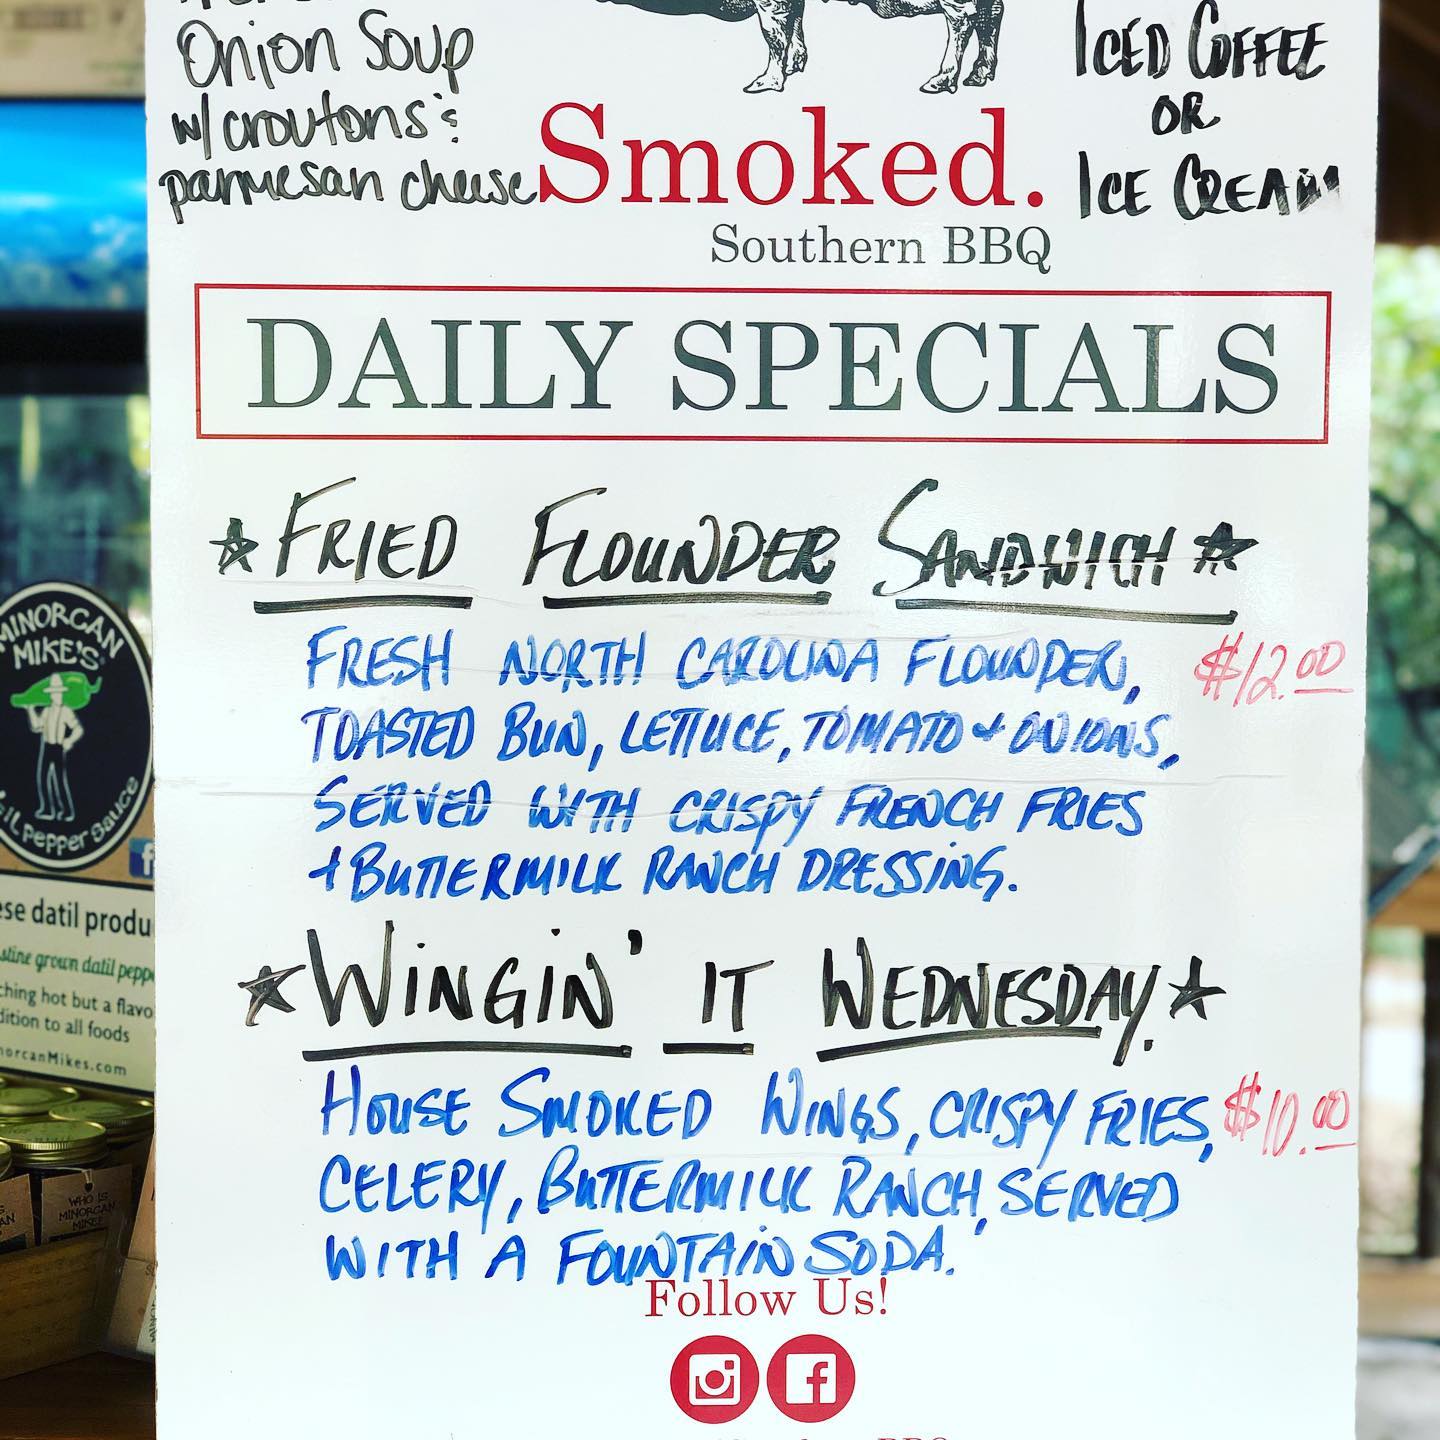 Onion Soup
w/ croutons &
parmesan cheese
ICED COFFEE
OR
ICE CREAM
Smoked.
Southern BBQ
DAILY SPECIALS
FRIED FLOUNDER SANDWICH
FRESH NORTH CAROLINA FLOUNDER, $12.00
TOASTED BUN, LETTUCE, TOMATO + ONIONS,
SERVED WITH CRISPY FRENCH FRIES
+ BUTTERMILK RANCH DRESSING.
WINGIN' IT WEDNESDAY.
HOUSE SMOKED WINGS, CRISPY FRIES, $10.00
CELERY, BUTTERMILK RANCH, SERVED
WITH A FOUNTAIN SODA.
Follow Us!
MINORCAN
MIKE'S
Pepper Sauce
datil produ
stine grown datil peppe
ching hot but a flavo
dition to all foods
norcanMikes.com
WHO IS
MINORCAN
MIKE?